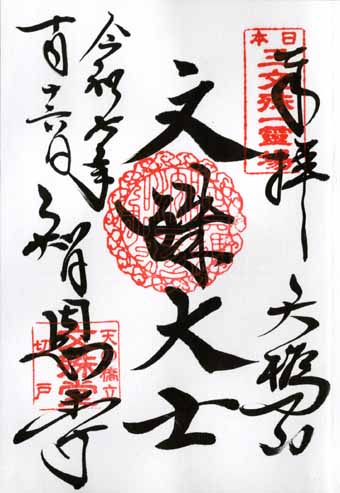 奉拝
日本
三文殊一霊場
天橋立
文殊大士
令和七年
十月十六日
智恩寺
天の橋立
文殊堂
切戸